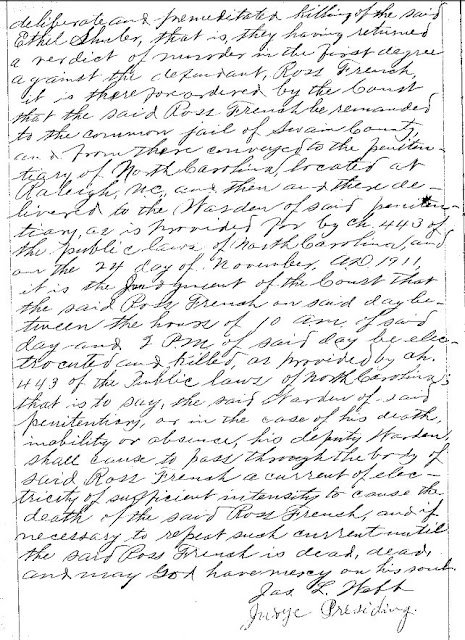 deliberate and premeditated killing of the said
Ethel Shuler, that is, they having returned
a verdict of murder in the first degree
against the defendant, Ross French,
it is therefore ordered by the Court
that the said Ross French be remanded
to the common jail of Swain County,
and from there conveyed to the peniten-
tiary of North Carolina located at
Raleigh, NC, and then and there de-
livered to the Warden of said peniten-
tiary, as is provided for by ch. 443 of
the public laws of North Carolina, and
on the 24 day of November, A.D. 1911,
it is the judgment of the Court that
the said Ross French on said day be-
tween the hours of 10 am. of said
day and 2 P.M. of said day be elec-
trocuted and killed, as provided by ch.
443 of the Public laws of North Carolina;
that is to say, the said Warden of said
penitentiary, or in the case of his death,
inability or absence, his deputy Warden,
shall cause to pass through the body of
said Ross French a current of elec-
tricity of sufficient intensity to cause the
death of the said Ross French, and if
necessary to repeat such current until
the said Ross French is dead, dead,
and may God have mercy on his soul.
Jas L. Webb
Judge Presiding.